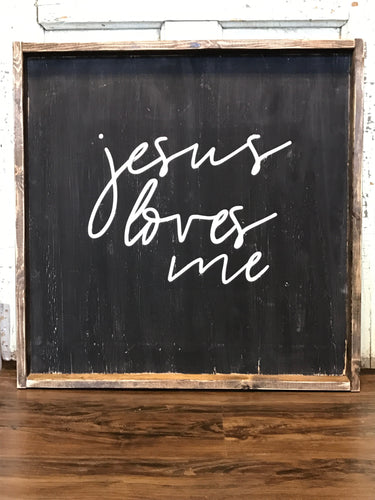 jesus
loves
me